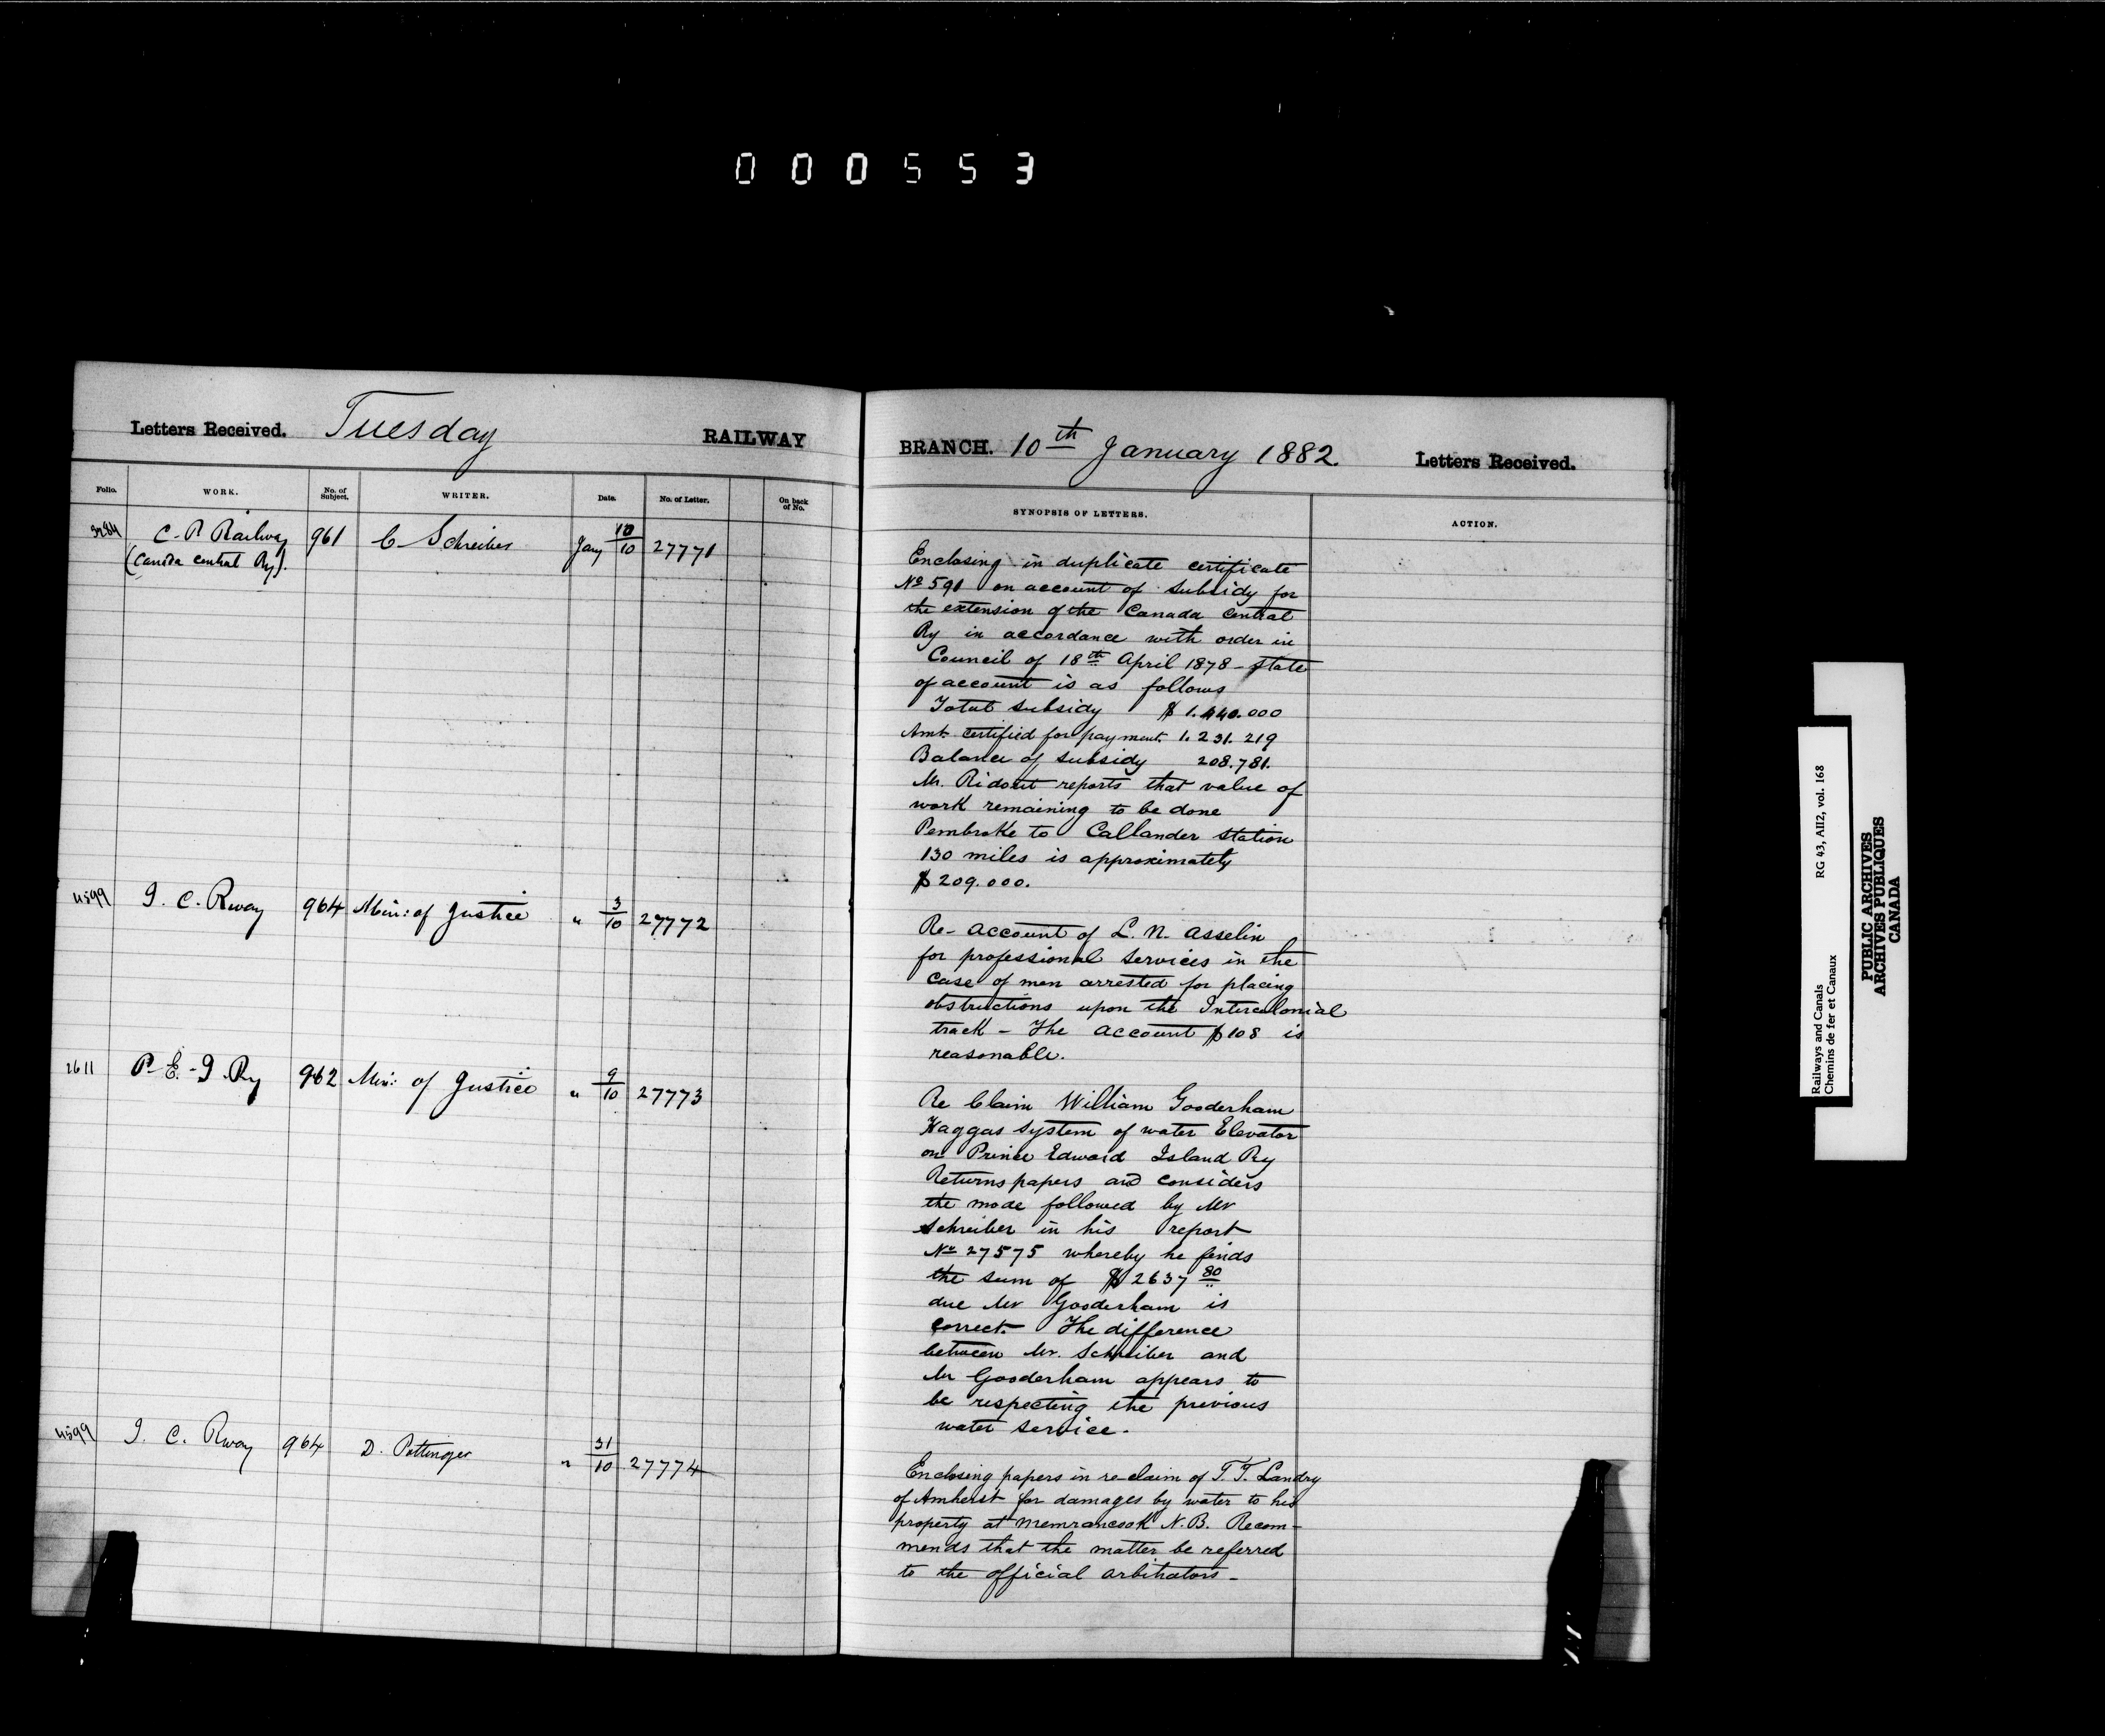 000553
Letters Received. Tuesday RAILWAY
BRANCH. 10th January 1882. Letters Received.
Folio. WORK. No. of Subject. WRITER. Date. No. of Letter. On back of No.
SYNOPSIS OF LETTERS. ACTION.
3284 C. P. Railway 961 C Schreiber Jany 10/10 27771
(Canada Central Ry).
Enclosing in duplicate certificate
No 591 on account of subsidy for
the extension of the Canada Central
Ry in accordance with order in
Council of 18th April 1878 - state
of account is as follows
Total subsidy $ 1.440.000
Amt. certified for payment. 1.231.219
Balance of subsidy 208.781.
Mr. Ridout reports that value of
work remaining to be done
Pembroke to Callander station
130 miles is approximately
$ 209.000.
4599 I. C. Rway 964 Min: of Justice " 3/10 27772
Re- account of L. N. Asselin
for professional services in the
case of men arrested for placing
obstructions upon the Intercolonial
track - The account $108 is
reasonable.
2611 P. E. I. Ry 962 Min: of Justice " 9/10 27773
Re Claim William Gooderham
Haggas system of water Elevator
on Prince Edward Island Ry
Returns papers and considers
the mode followed by Mr
Schreiber in his report
No 27575 whereby he finds
the sum of $ 2637 80
due Mr Gooderham is
correct. The difference
between Mr. Schreiber and
Mr Gooderham appears to
be respecting the previous
water service.
4599 I. C. Rway 964 D. Pottinger " 31/10 27774
Enclosing papers in re-claim of T. T. Landry
of Amherst for damages by water to his
property at Memrancook N.B. Recom-
mends that the matter be referred
to the official arbitrators -
Railways and Canals RG 43, AII2, vol. 168
Chemins de fer et Canaux
PUBLIC ARCHIVES
ARCHIVES PUBLIQUES
CANADA